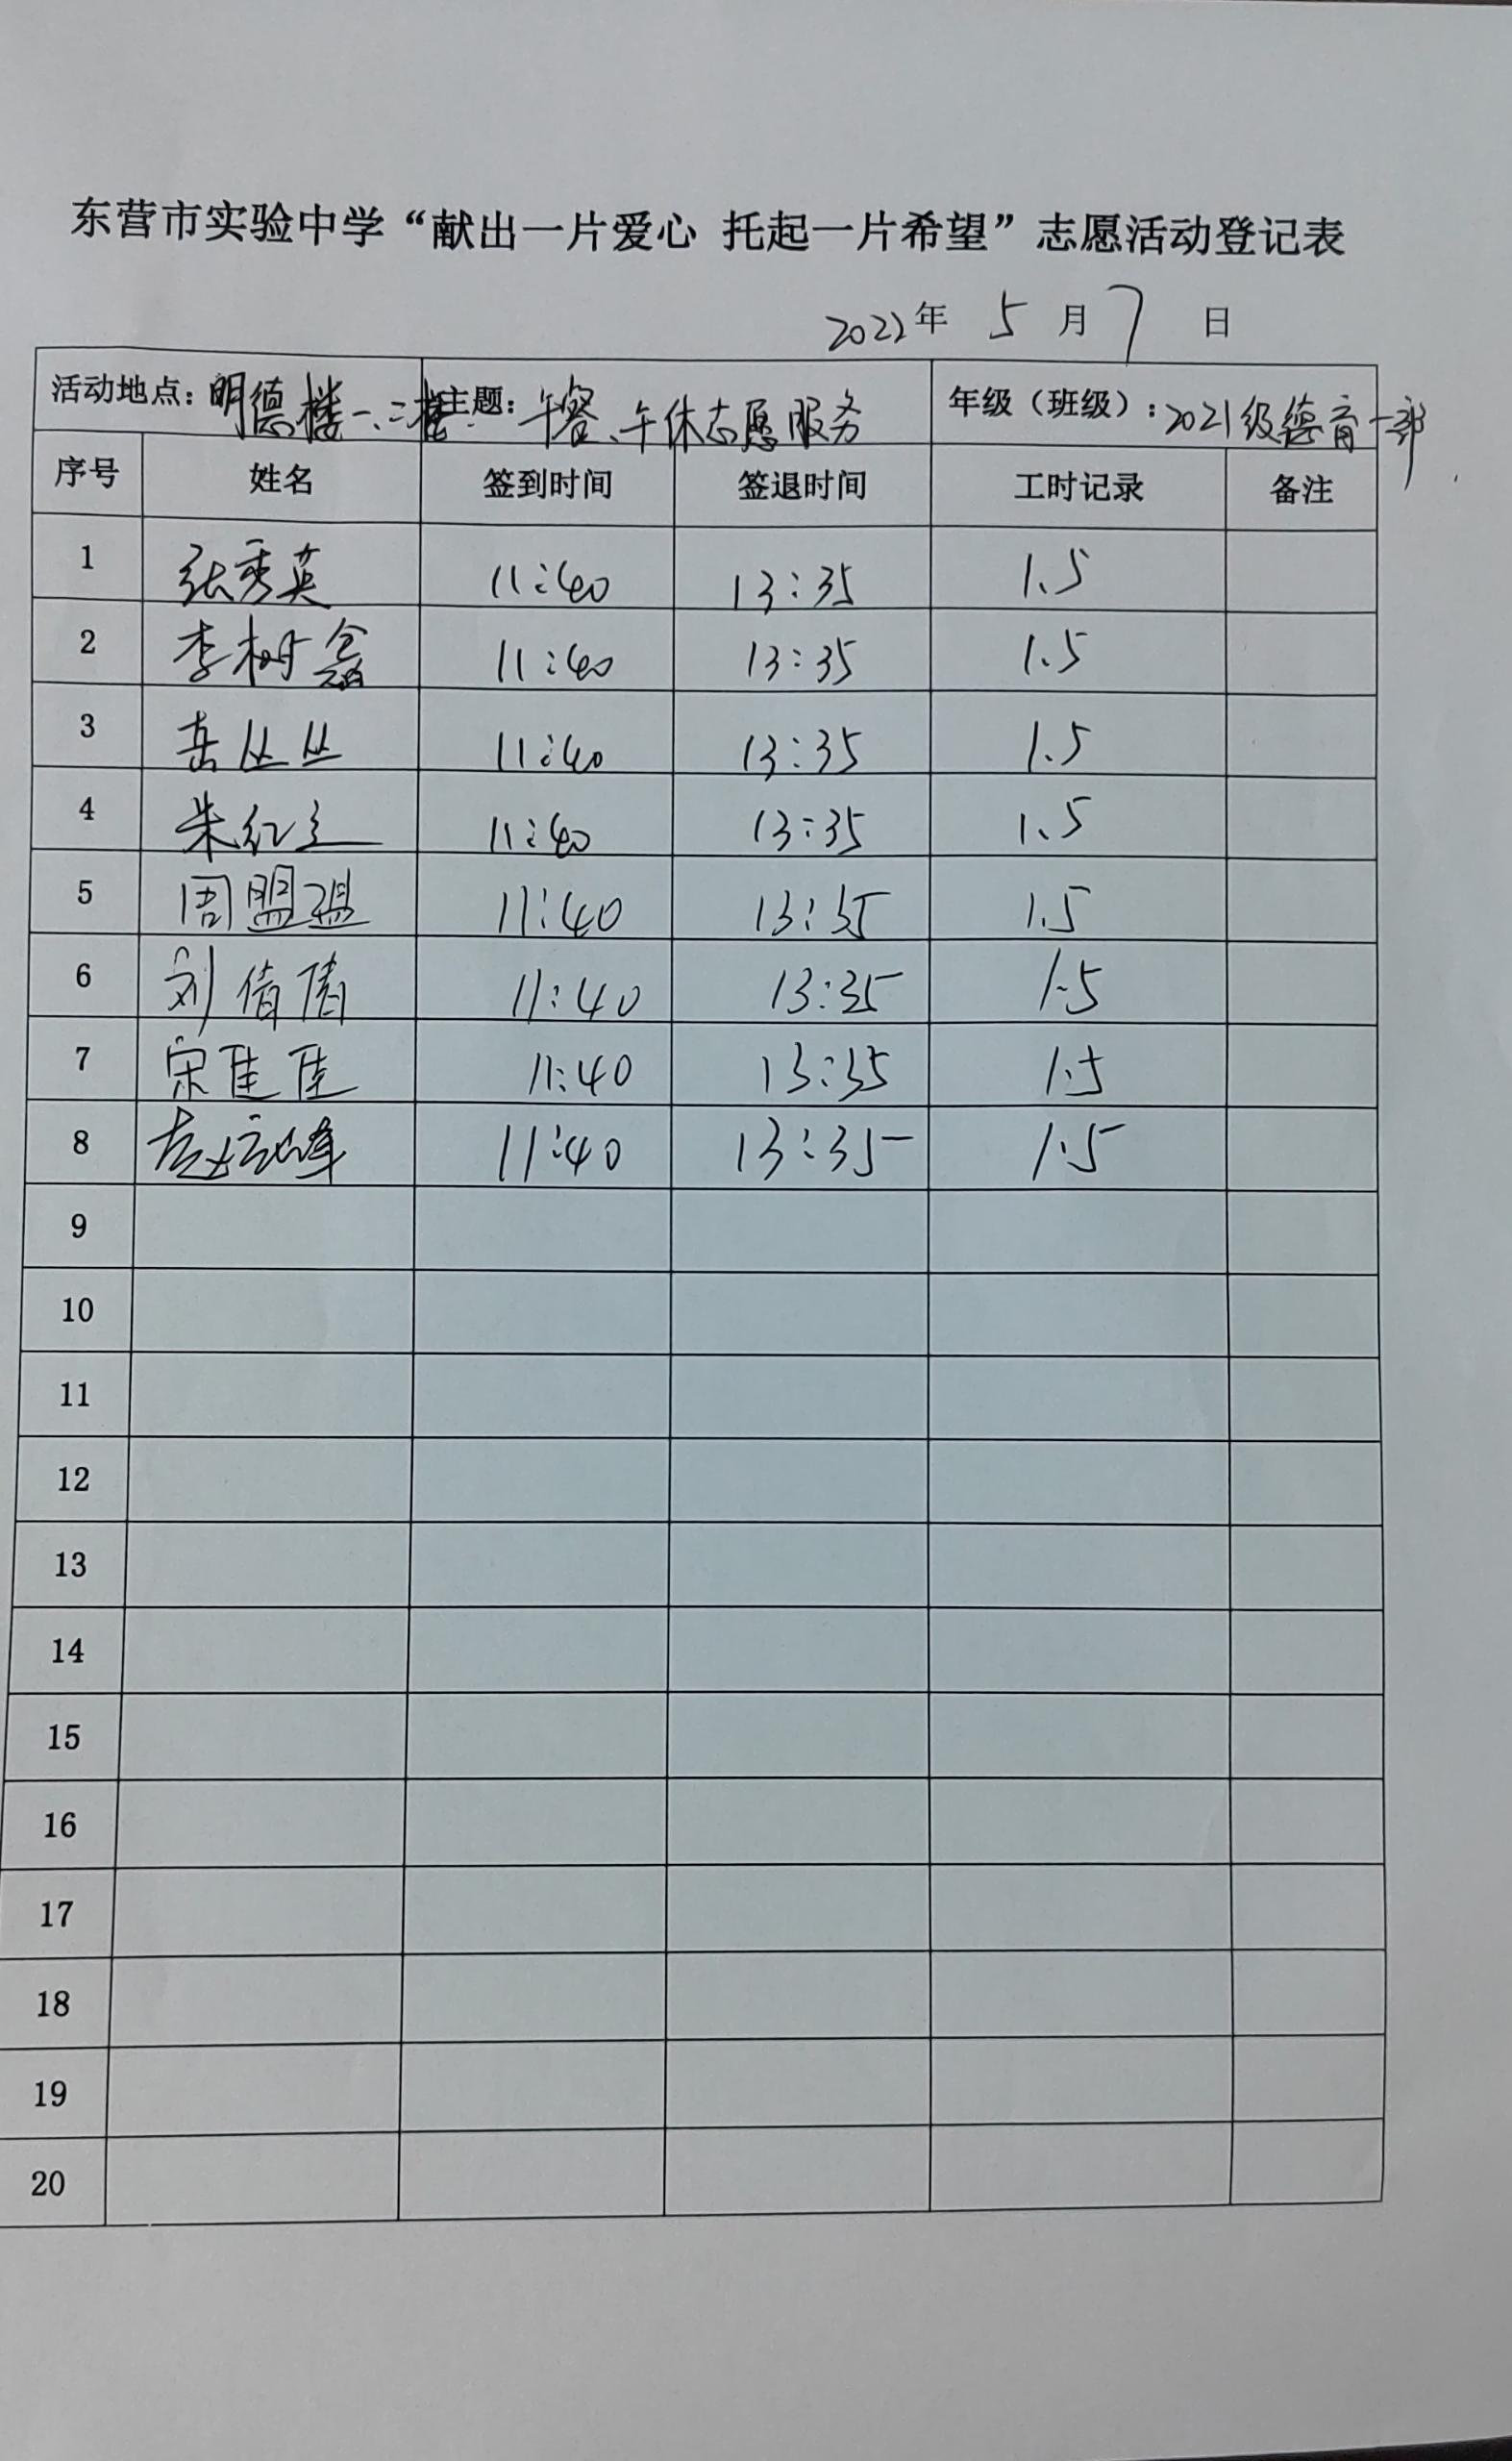 东营市实验中学“献出一片爱心 托起一片希望”志愿活动登记表
2022年 5 月 7 日
活动地点：明德楼一、二楼 主题：午餐、午休志愿服务 年级（班级）：2021级德育一部
序号 姓名 签到时间 签退时间 工时记录 备注
1 张秀英 11:40 13:35 1.5
2 李树鑫 11:40 13:35 1.5
3 岳丛丛 11:40 13:35 1.5
4 朱红立 11:40 13:35 1.5
5 周盟盟 11:40 13:35 1.5
6 刘倩倩 11:40 13:35 1.5
7 宋佳佳 11:40 13:35 1.5
8 11:40 13:35 1.5
9
10
11
12
13
14
15
16
17
18
19
20